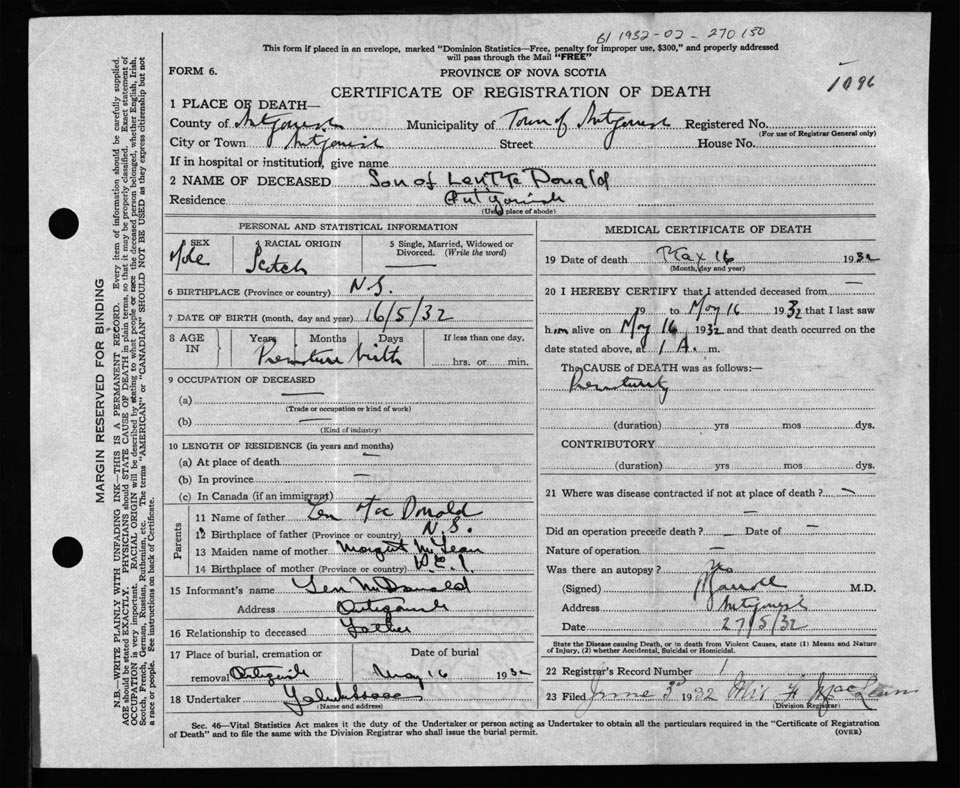 61 1932-02-270150
This form if placed in an envelope, marked "Dominion Statistics—Free, penalty for improper use, $300," and properly addressed
will pass through the Mail "FREE"
1096
FORM 6. PROVINCE OF NOVA SCOTIA
CERTIFICATE OF REGISTRATION OF DEATH
1 PLACE OF DEATH—
County of Antigonish Municipality of Town of Antigonish Registered No.
(For use of Registrar General only)
City or Town Antigonish Street House No.
If in hospital or institution, give name
2 NAME OF DECEASED Son of Len Mc Donald
Residence Antigonish
(Usual place of abode)
PERSONAL AND STATISTICAL INFORMATION
3 SEX 4 RACIAL ORIGIN 5 Single, Married, Widowed or
Divorced. (Write the word)
Male Scotch
6 BIRTHPLACE (Province or country) N.S.
7 DATE OF BIRTH (month, day and year) 16/5/32
8 AGE IN Years Months Days If less than one day,
Premature birth hrs. or min.
9 OCCUPATION OF DECEASED
(a) —
(Trade or occupation or kind of work)
(b) —
(Kind of industry)
10 LENGTH OF RESIDENCE (in years and months)
(a) At place of death —
(b) In province —
(c) In Canada (if an immigrant)
Parents
11 Name of father Len Mac Donald
12 Birthplace of father (Province or country) N.S.
13 Maiden name of mother Margaret McLean
14 Birthplace of mother (Province or country) P.E.I.
15 Informant's name Len McDonald
Address Antigonish
16 Relationship to deceased Father
17 Place of burial, cremation or Date of burial
removal Antigonish May 16 1932
18 Undertaker
(Name and address)
MEDICAL CERTIFICATE OF DEATH
19 Date of death May 16 1932
(Month, day and year)
20 I HEREBY CERTIFY that I attended deceased from —
19 to May 16 1932 that I last saw
him alive on May 16 1932 and that death occurred on the
date stated above, at 1 A. m.
The CAUSE of DEATH was as follows:—
Prematurity
(duration) yrs mos dys.
CONTRIBUTORY
(duration) yrs mos dys.
21 Where was disease contracted if not at place of death? —
—
Did an operation precede death? — Date of —
Nature of operation —
Was there an autopsy? no
(Signed) M.D.
Address Antigonish
Date 27/5/32
State the Disease causing Death, or in death from Violent Causes, state (1) Means and Nature
of Injury, (2) whether Accidental, Suicidal or Homicidal.
22 Registrar's Record Number 1.
23 Filed June 3rd 1932 F. MacLean
(Division Registrar)
Sec. 46—Vital Statistics Act makes it the duty of the Undertaker or person acting as Undertaker to obtain all the particulars required in the "Certificate of Registration
of Death" and to file the same with the Division Registrar who shall issue the burial permit. (OVER)
MARGIN RESERVED FOR BINDING
N.B.—WRITE PLAINLY WITH UNFADING INK—THIS IS A PERMANENT RECORD. Every item of information should be carefully supplied.
AGE should be stated EXACTLY. PHYSICIANS should STATE CAUSE OF DEATH in plain terms, so that it may be properly classified. Exact statement of
OCCUPATION is very important. RACIAL ORIGIN will be described by stating to what people or race the deceased person belonged, whether English, Irish,
Scotch, French, German, Russian, Ruthenian, etc. The terms "AMERICAN" or "CANADIAN" SHOULD NOT BE USED as they express citizenship but not
a race or people. See instructions on back of Certificate.